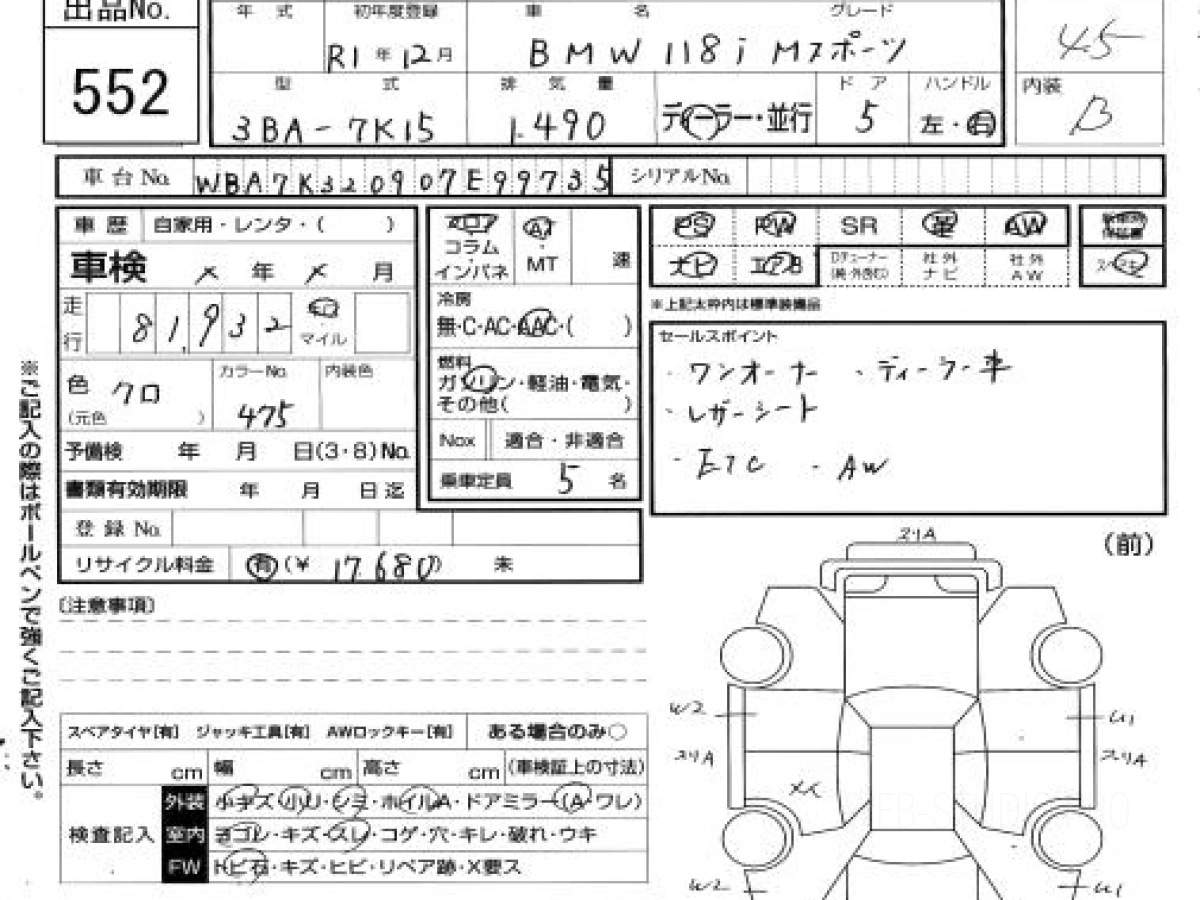 出品No.
552
年 式 初年度登録 車 名 グレード
R1年12月 BMW 118i Mスポーツ 45
型 式 排 気 量 ドア ハンドル 内装
3BA-7K15 1.490 ディーラー・並行 5 左・右 B
車台No. WBA7K320907E99735 シリアルNo.
車 歴 自家用・レンタ・( )
車検 メ 年 メ 月
走行 81,932 マイル
色 クロ カラーNo. 475 内装色
(元色 )
予備検 年 月 日(3・8)No.
書類有効期限 年 月 日迄
登録No.
リサイクル料金 有(¥ 17.680) 未
フロア コラム インパネ
AT・MT 速
冷房
無・C・AC・AAC・( )
燃料
ガソリン・軽油・電気・
その他( )
Nox 適合・非適合
乗車定員 5 名
PS PW SR 革 AW
ナビ エアB Dチューナー 社外ナビ 社外AW
スペアキー
※上記太枠内は標準装備品
セールスポイント
・ワンオーナー ・ディーラー車
・レザーシート
・ETC ・AW
(注意事項)
※ご記入の際はボールペンで強くご記入下さい。
スペアタイヤ[有] ジャッキ工具[有] AWロックキー[有] ある場合のみ○
長さ cm 幅 cm 高さ cm (車検証上の寸法)
検査記入
外装 小キズ・小U・シミ・ホイルA・ドアミラー(A・ワレ)
室内 ヨゴレ・キズ・スレ・コゲ・穴・キレ・破れ・ウキ
FW トビ石・キズ・ヒビ・リペア跡・X要ス
(前)
スリA
W2 U1
スリA スリA
W2 U1